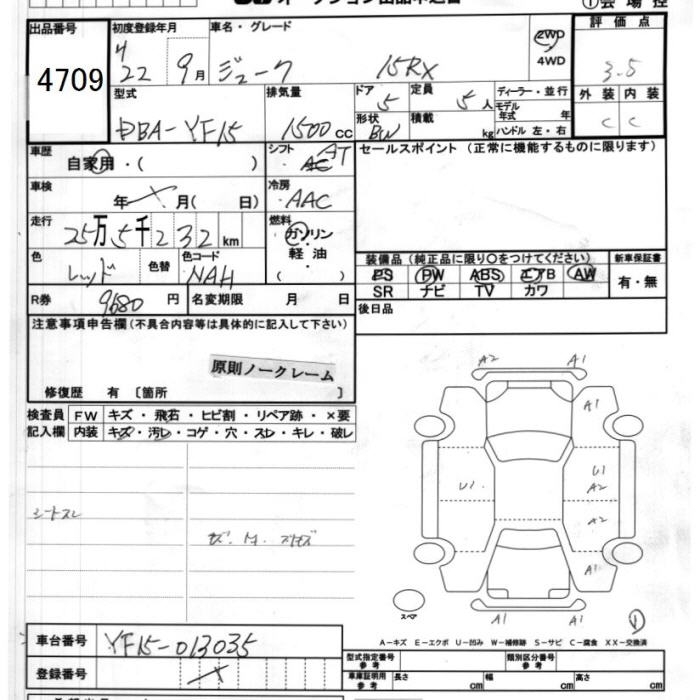 オークション出品申込書
①会場控
出品番号 初度登録年月 車名・グレード 評価点
4709 H22 9月 ジューク 15RX 2WD 4WD 3.5
型式 排気量 ドア 定員 ディーラー・並行 外装 内装
DBA-YF15 1500cc 5 5人 モデル年式 年 C C
形状 BW 積載 kg ハンドル 左・右
車歴 自家用・( ) シフト AT セールスポイント (正常に機能するものに限ります)
車検 年 月( 日) 冷房 AAC
走行 25万5千232km 燃料 ガソリン・軽油・( )
色 レッド 色替 色コード NAH
装備品 (純正品に限り○をつけてください) 新車保証書
PS PW ABS エアB AW 有・無
SR ナビ TV カワ
R券 9680円 名変期限 月 日 後日品
注意事項申告欄(不具合内容等は具体的に記入して下さい)
原則ノークレーム
修復歴 有 〔箇所 〕
検査員記入欄 FW キズ・飛石・ヒビ割・リペア跡・×要
内装 キズ・汚レ・コゲ・穴・スレ・キレ・破レ
A2 A1
A1
U1 U1
A2
A2
A1
A1 A1
シートスレ
スペア
①
A-キズ E-エクボ U-凹み W-補修跡 S-サビ C-腐食 XX-交換済
車台番号 YF15-013035
型式指定番号 参考 類別区分番号 参考
登録番号
車庫証明用 参考 長さ cm 幅 cm 高さ cm